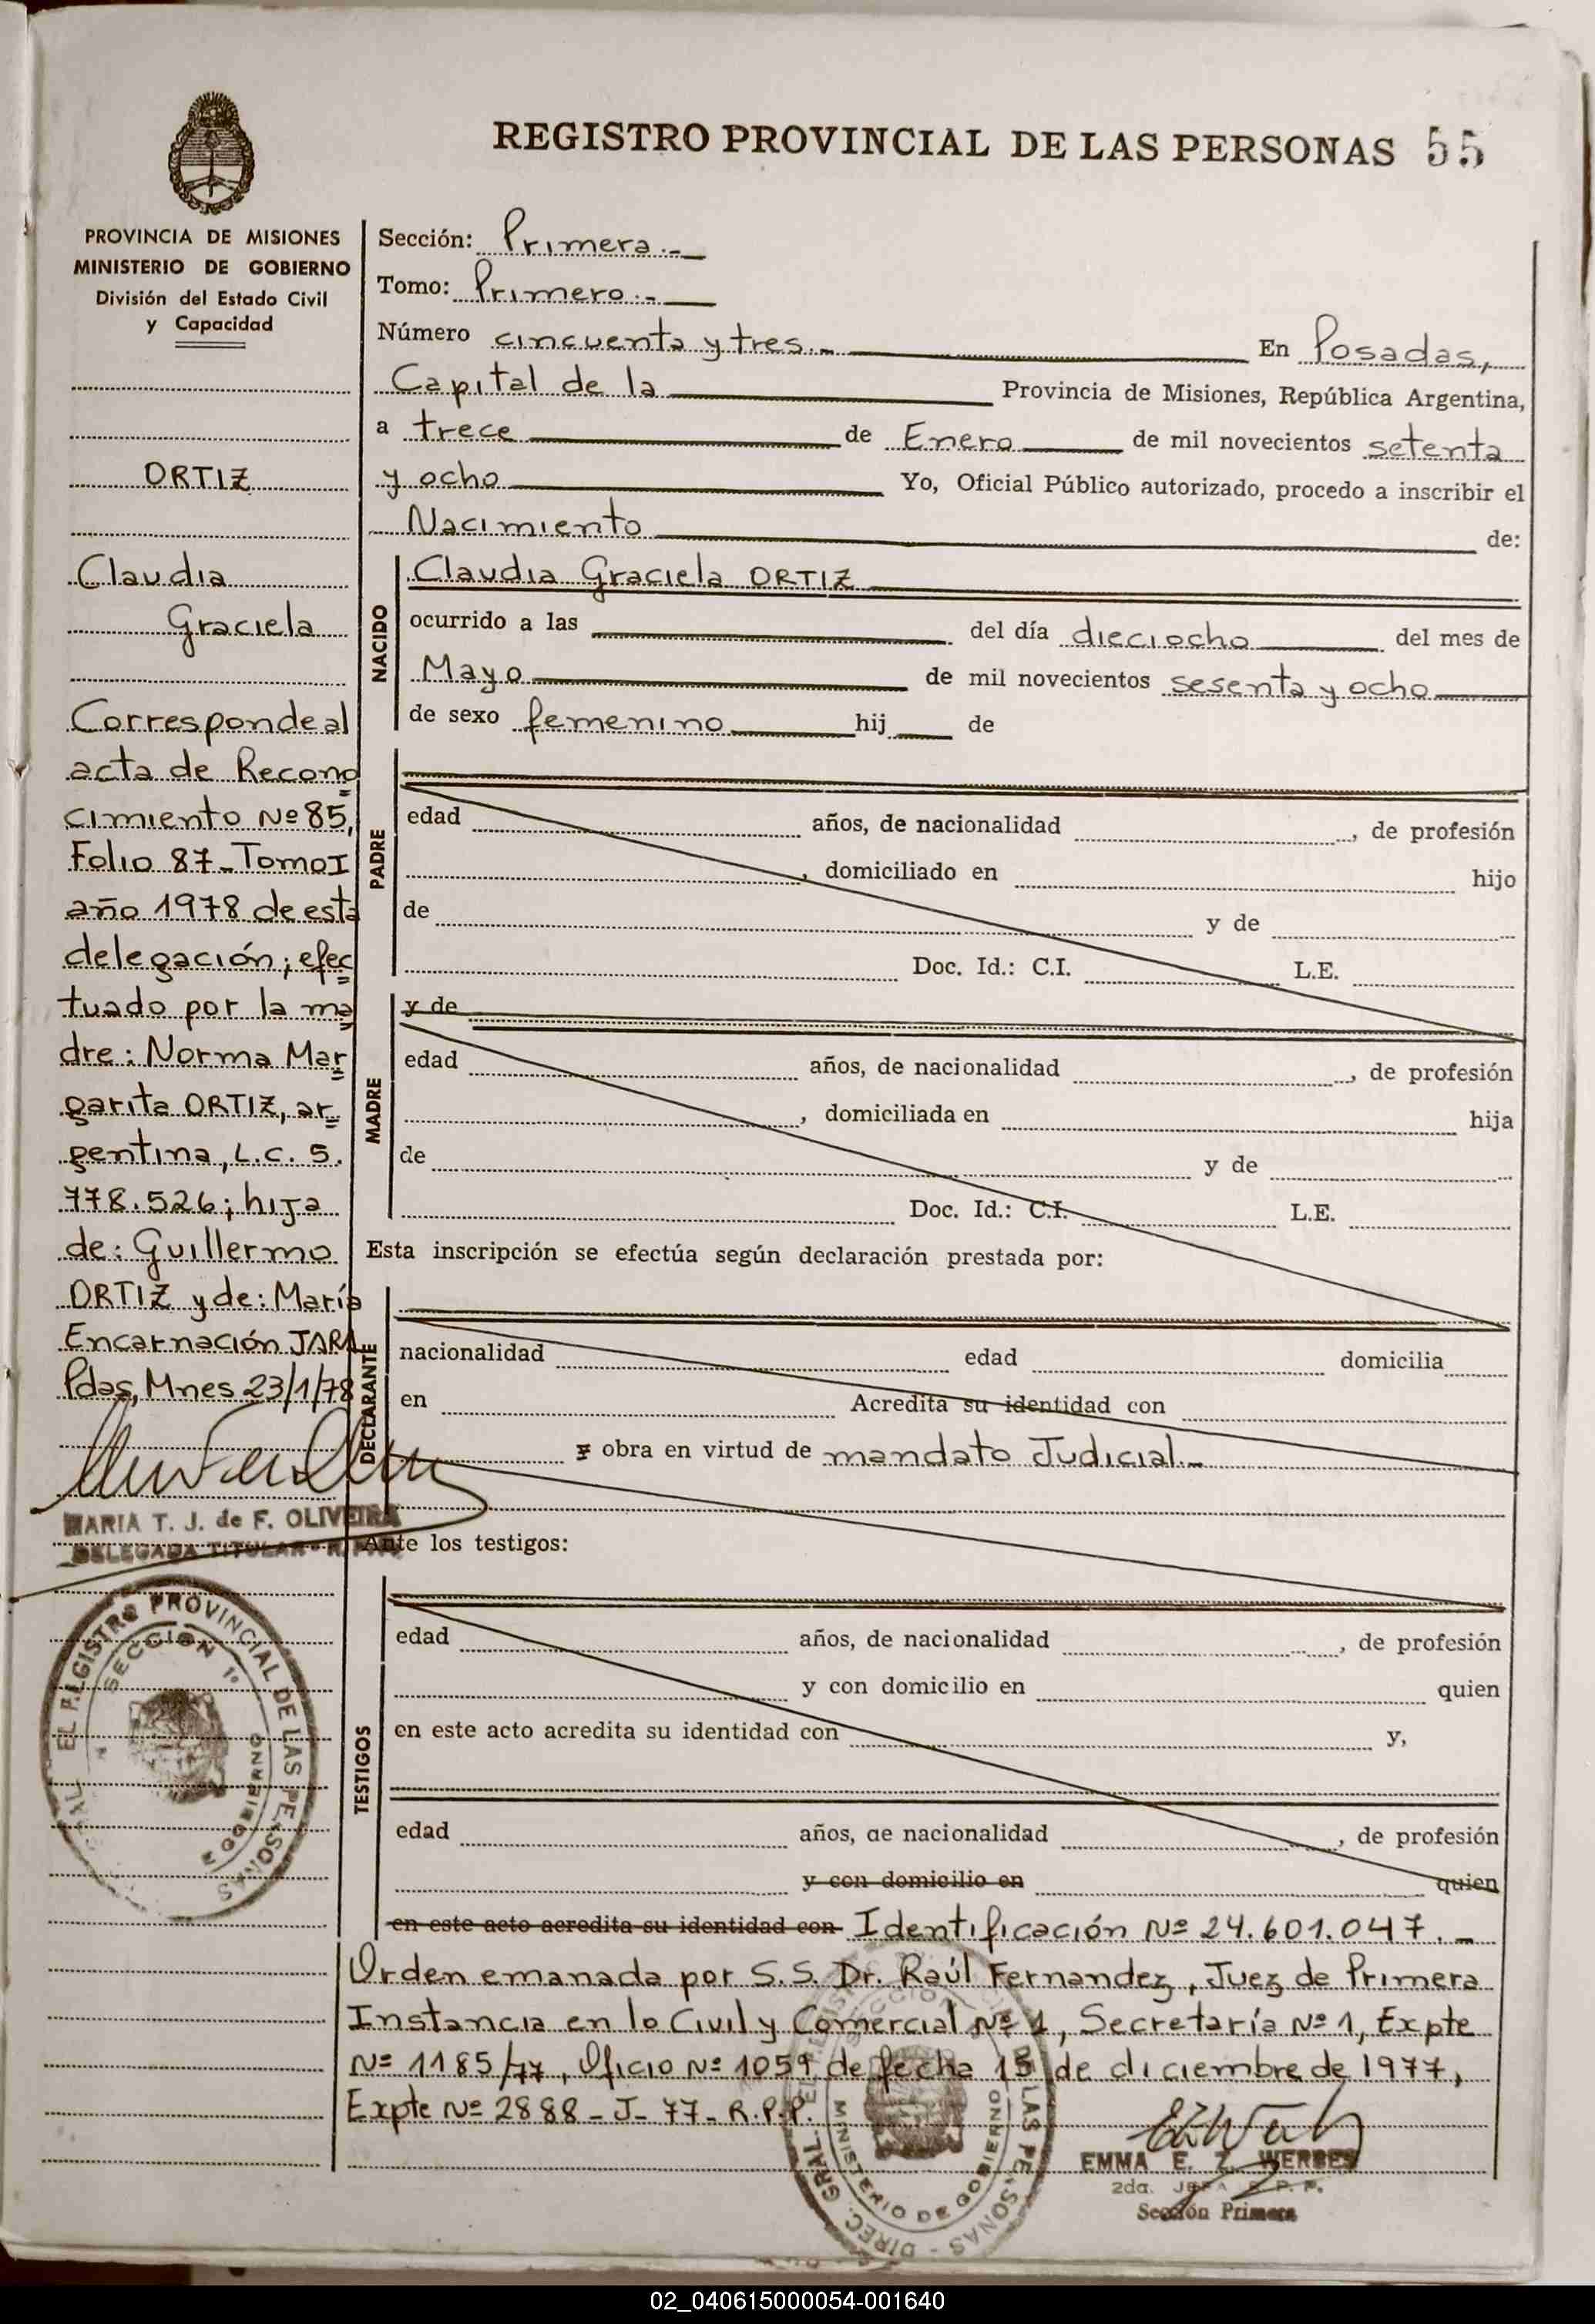 REGISTRO PROVINCIAL DE LAS PERSONAS 55
PROVINCIA DE MISIONES
MINISTERIO DE GOBIERNO
División del Estado Civil
y Capacidad
ORTIZ
Claudia
Graciela
Corresponde al
acta de Recono
cimiento Nº 85,
Folio 87 - Tomo I
año 1978 de esta
delegación; efec
tuado por la ma
dre: Norma Mar
garita ORTIZ, ar
gentina, L.C. 5.
778.526; hija
de: Guillermo
ORTIZ y de: María
Encarnación JARA
Pdas, Mnes 23/1/78
MARIA T. J. de F. OLIVEIRA
DELEGADA TITULAR
EL REGISTRO PROVINCIAL DE LAS PERSONAS
SECCION 1º
GOBIERNO
Sección: Primera.-
Tomo: Primero.-
Número cincuenta y tres.- En Posadas,
Capital de la Provincia de Misiones, República Argentina,
a trece de Enero de mil novecientos setenta
y ocho Yo, Oficial Público autorizado, procedo a inscribir el
Nacimiento de:
NACIDO
Claudia Graciela ORTIZ
ocurrido a las del día dieciocho del mes de
Mayo de mil novecientos sesenta y ocho
de sexo femenino hij de
PADRE
edad años, de nacionalidad , de profesión
, domiciliado en hijo
de y de
Doc. Id.: C.I. L.E.
MADRE
y de
edad años, de nacionalidad , de profesión
, domiciliada en hija
de y de
Doc. Id.: C.I. L.E.
Esta inscripción se efectúa según declaración prestada por:
DECLARANTE
nacionalidad edad domicilia
en Acredita su identidad con
y obra en virtud de mandato Judicial.-
Ante los testigos:
TESTIGOS
edad años, de nacionalidad , de profesión
y con domicilio en quien
en este acto acredita su identidad con y,
edad años, de nacionalidad , de profesión
y con domicilio en quien
en este acto acredita su identidad con Identificación Nº 24.601.047.-
Orden emanada por S.S. Dr. Raúl Fernandez, Juez de Primera
Instancia en lo Civil y Comercial Nº 1, Secretaría Nº 1, Expte
Nº 1185/77, Oficio Nº 1059 de fecha 15 de diciembre de 1977,
Expte Nº 2888-J-77-R.P.P.
MINISTERIO DE GOBIERNO
DIREC. GRAL.
EMMA E. Z. WERBES
2da. JEFA R. P. P.
Sección Primera
02_040615000054-001640